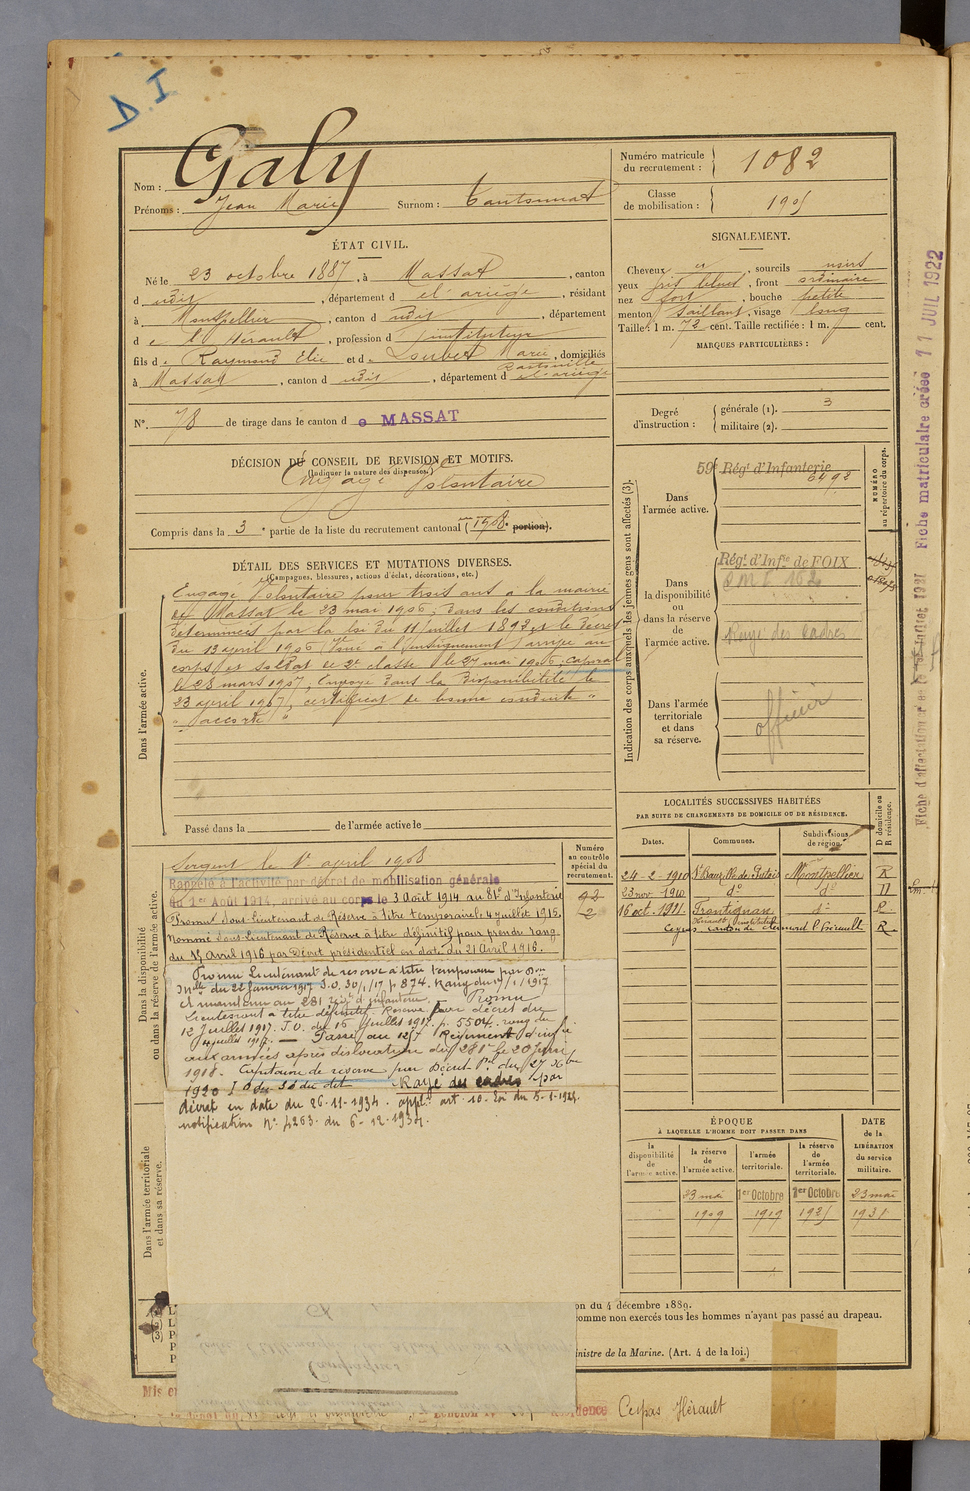 D.I
Galy
Nom :
Prénoms : Jean Marie Surnom : Tantounat
ÉTAT CIVIL.
Né le 23 octobre 1887, à Massat, canton
d udit, département d el'ariège, résidant
à Montpellier, canton d udit, département
d e l'Hérault, profession d instituteur
fils de Raymond Elie et de Loubet Marie, domiciliés
à Massat, canton d udit, département d el'ariège
N° 78 de tirage dans le canton d e MASSAT
DÉCISION DU CONSEIL DE REVISION ET MOTIFS.
(Indiquer la nature des dispenses.)
Engagé Volontaire
Compris dans la 3e partie de la liste du recrutement cantonal (1908 portion).
DÉTAIL DES SERVICES ET MUTATIONS DIVERSES.
(Campagnes, blessures, actions d'éclat, décorations, etc.)
Dans l'armée active.
Engagé Volontaire pour trois ans à la mairie
de Massat le 23 mai 1906, dans les conditions
déterminées par la loi du 11 juillet 1892 et le décret
du 13 april 1906 l'enseignement arrivé au
corps et soldat de 2e classe le 27 mai 1906, caporal
le 28 mars 1907, Envoyé dans la disponibilité le
23 april 1907, certificat de bonne conduite "
" accordé "
Passé dans la de l'armée active le
Dans la disponibilité
ou dans la réserve de l'armée active.
Sergent le 1er april 1908
Rappelé à l'activité par décret de mobilisation générale
du 1er Août 1914, arrivé au corps le 3 Août 1914 au 81e d'Infanterie
Promu Sous-Lieutenant de Réserve à titre temporaire le 4 juillet 1915.
Nommé Sous-Lieutenant de Réserve à titre définitif pour prendre rang
du 15 Avril 1916 par Décret présidentiel en date du 21 Avril 1916.
Promu Lieutenant de réserve à titre temporaire par Don
Mlle du 22 Janvier 1917 J.O. 30/1/17 p 874. Rang du 17/1/1917
et maintenu au 281 régt d'infanterie. Promu
Lieutenant à titre définitif. Réserve par décret du
12 Juillet 1917. J.O. du 15 Juillet 1917. p. 5504. rang du
4 juillet 1917. — Passé au 125 Régiment d'infie
aux armées après dislocation du 281e le 20 juin
1918. Capitaine de réserve par Décret Pel du 27 Xbre
1920 J.O. du 30 du dit Rayé des cadres par
décret en date du 26-11-1934. appl. art. 10. Loi du 8-1-1925.
notification n° 4263. du 6-12-1934.
Dans l'armée territoriale
et dans sa réserve.
Numéro
au contrôle
spécial du
recrutement.
Numéro matricule
du recrutement : 1082
Classe
de mobilisation : 1905
SIGNALEMENT.
Cheveux , sourcils noirs
yeux gris bleus, front ordinaire
nez fort, bouche petite
menton saillant, visage long
Taille : 1 m. 72 cent. Taille rectifiée : 1 m. cent.
MARQUES PARTICULIÈRES :
Degré
d'instruction :
générale (1). 3
militaire (2).
Indication des corps auxquels les jeunes gens sont affectés (3).
NUMÉRO
au répertoire du corps.
Dans
l'armée active.
59e Régt d'Infanterie
6492
Dans
la disponibilité
ou
dans la réserve
de
l'armée active.
Régt d'Infie de FOIX
Rayé des cadres
Dans l'armée
territoriale
et dans
sa réserve.
officier
Fiche matriculaire créée 11 JUIL 1922
LOCALITÉS SUCCESSIVES HABITÉES
PAR SUITE DE CHANGEMENTS DE DOMICILE OU DE RÉSIDENCE.
Dates. Communes. Subdivisions
de région. D domicile ou
R résidence.
24-2-1910 Montpellier R
23 nov. 1910 do do D
16 oct. 1921 Frontignan do R
Hérault, instituteur
Ceyras, canton de Clermont l'Hérault R
ÉPOQUE
À LAQUELLE L'HOMME DOIT PASSER DANS
DATE
de la
LIBÉRATION
du service
militaire.
la
disponibilité
de
l'armée active.
la réserve
de
l'armée active.
l'armée
territoriale.
la réserve
de
l'armée
territoriale.
23 mai 1er Octobre 1er Octobre 23 mai
1909 1919 1925 1931
on du 4 décembre 1889.
comme non exercés tous les hommes n'ayant pas passé au drapeau.
inistre de la Marine. (Art. 4 de la loi.)
Campagnes
Mis en
Résidence Ceyras Hérault